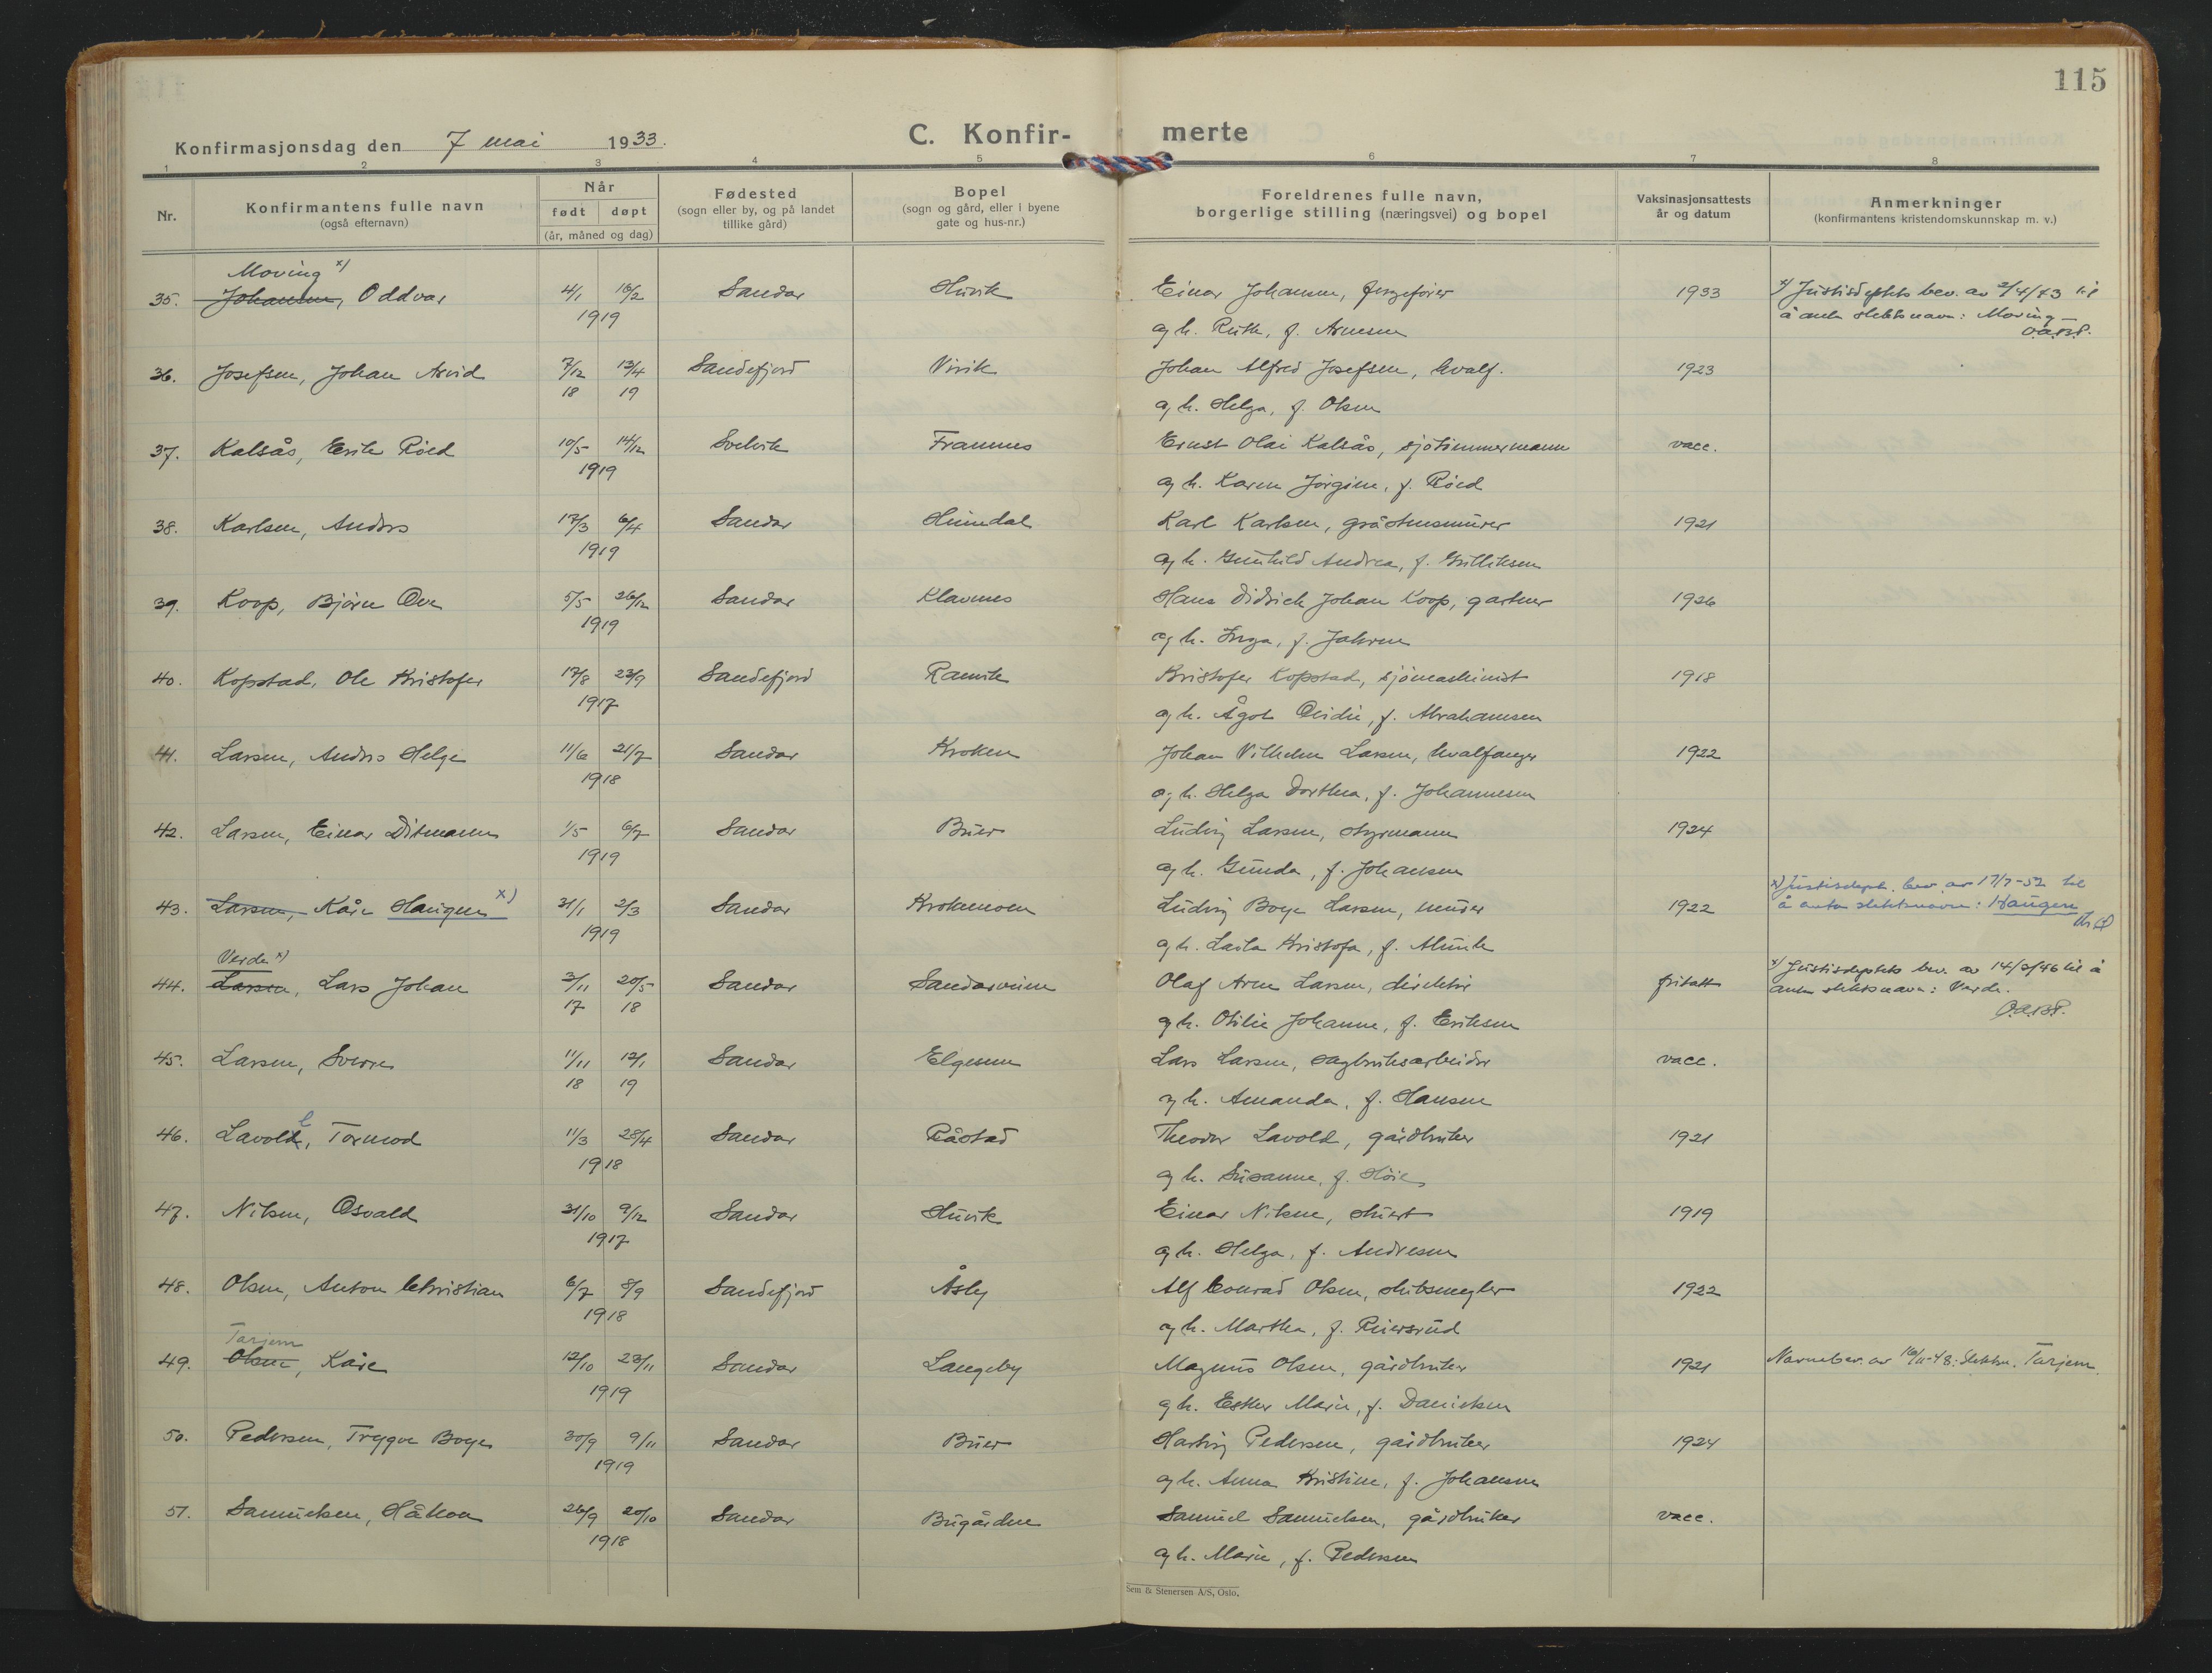 115
Konfirmasjonsdag den 7 mai 1933.
C. Konfir- merte
1 2 3 4 5 6 7 8
Nr. Konfirmantens fulle navn (også efternavn) Når født døpt (år, måned og dag) Fødested (sogn eller by, og på landet tillike gård) Bopel (sogn og gård, eller i byene gate og hus-nr.) Foreldrenes fulle navn, borgerlige stilling (næringsvei) og bopel Vaksinasjonsattests år og datum Anmerkninger (konfirmantens kristendomskunnskap m. v.)
Moving x)
35. Johansen, Oddvar 4/1 16/2 Sandar Huvik Einar Johansen, 1933 x) Justisdeptets bev. av 2/4/43 til
1919 og h. Ruth, f. Arnesen å anta slektsnavn: Moving
O.a.B.P.
36. Josefsen, Johan Arvid 7/12 13/4 Sandefjord Virik Johan Alfred Josefsen, hvalf. 1923
18 19 og h. Helga, f. Olsen
37. Kalsås, Erik Röed 10/5 14/12 Svelvik Framnes Ernst Olai Kalsås, sjötimmermann vacc.
1919 og h. Karen Jörgine, f. Röed
38. Karlsen, Anders 17/3 6/4 Sandar Hundal Karl Karlsen, gråstensmurer 1921
1919 og h. Gunhild Andrea, f. Gulliksen
39. Koop, Björn Ove 5/5 26/12 Sandar Klavnes Hans Didrich Johan Koop, gartner 1926
1919 og h. Inga, f. Jahren
40. Kopstad, Ole Kristofer 17/8 23/9 Sandefjord Ranvik Kristofer Kopstad, sjömaskinist 1918
1917 og h. Ågot Ovidie, f. Abrahamsen
41. Larsen, Anders Helge 11/6 21/7 Sandar Kroken Johan Vilhelm Larsen, hvalfanger 1922
1918 og h. Helga Dorthea, f. Johannesen
42. Larsen, Einar Ditmann 1/5 6/7 Sandar Buer Ludvig Larsen, styrmann 1924
1919 og h. Gunda, f. Johansen
43. Larsen, Kåre Haugen x) 31/1 2/3 Sandar Krokemoen Ludvig Boye Larsen, murer 1922 x) Justisdept. bev. av 17/7-52 til
1919 og h. Laila Kristofa, f. Munk å anta slektsnavn: Haugen
Verde x)
44. Larsen, Lars Johan 3/11 20/5 Sandar Sandarveien Olaf Arne Larsen, direktör fritatt x) Justisdeptets bev. av 14/2/46 til å
17 18 og h. Otilie Johanne, f. Eriksen anta slektsnavn: Verde.
O.a.B.P.
45. Larsen, Sverre 11/11 12/1 Sandar Elgesem Lars Larsen, sagbruksarbeider vacc.
18 19 og h. Amanda, f. Hansen
46. Lavold, Tormod 11/3 28/4 Sandar Råstad Theodor Lavold, gårdbruker 1921
1918 og h. Susanne, f. Höie
47. Nilsen, Osvald 31/10 9/12 Sandar Huvik Einar Nilsen, stuert 1919
1917 og h. Helga, f. Andresen
48. Olsen, Anton Christian 6/7 8/9 Sandefjord Åsly Alf Conrad Olsen, skibsmegler 1922
1918 og h. Martha, f. Ruiersrud
Tarjem
49. Olsen, Kåre 12/10 23/11 Sandar Langeby Magnus Olsen, gårdbruker 1921 Navnebev. av 16/11-48: Slektsn. Tarjem.
1919 og h. Esther Marie, f. Danielsen
50. Pedersen, Trygve Boye 30/9 9/11 Sandar Buer Hartvig Pedersen, gårdbruker 1924
1919 og h. Anna Kristine, f. Johansen
51. Samuelsen, Håkon 26/9 20/10 Sandar Bugården Samuel Samuelsen, gårdbruker vacc.
1918 og h. Marie, f. Pedersen
Sem & Stenersen A/S, Oslo.